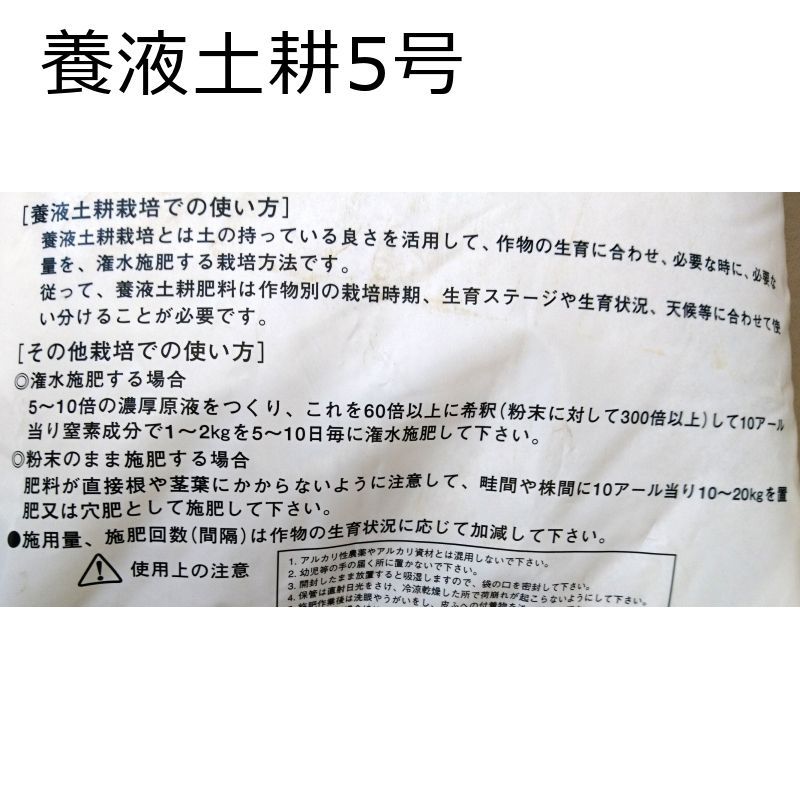 養液土耕5号
[養液土耕栽培での使い方]
養液土耕栽培とは土の持っている良さを活用して、作物の生育に合わせ、必要な時に、必要な
量を、潅水施肥する栽培方法です。
従って、養液土耕肥料は作物別の栽培時期、生育ステージや生育状況、天候等に合わせて使
い分けることが必要です。
[その他栽培での使い方]
◎潅水施肥する場合
5〜10倍の濃厚原液をつくり、これを60倍以上に希釈(粉末に対して300倍以上)して10アール
当り窒素成分で1〜2kgを5〜10日毎に潅水施肥して下さい。
◎粉末のまま施肥する場合
肥料が直接根や茎葉にかからないように注意して、畦間や株間に10アール当り10〜20kgを置
肥又は穴肥として施肥して下さい。
●施用量、施肥回数(間隔)は作物の生育状況に応じて加減して下さい。
使用上の注意
1. アルカリ性農薬やアルカリ資材とは混用しないで下さい。
2. 幼児等の手の届く所に置かないで下さい。
3. 開封したまま放置すると吸湿しますので、袋の口を密封して下さい。
4. 保管は直射日光をさけ、冷涼乾燥した所で荷崩れが起こらないようにして下さい。
施肥作業後は洗眼やうがいをし、皮ふへの付着物を